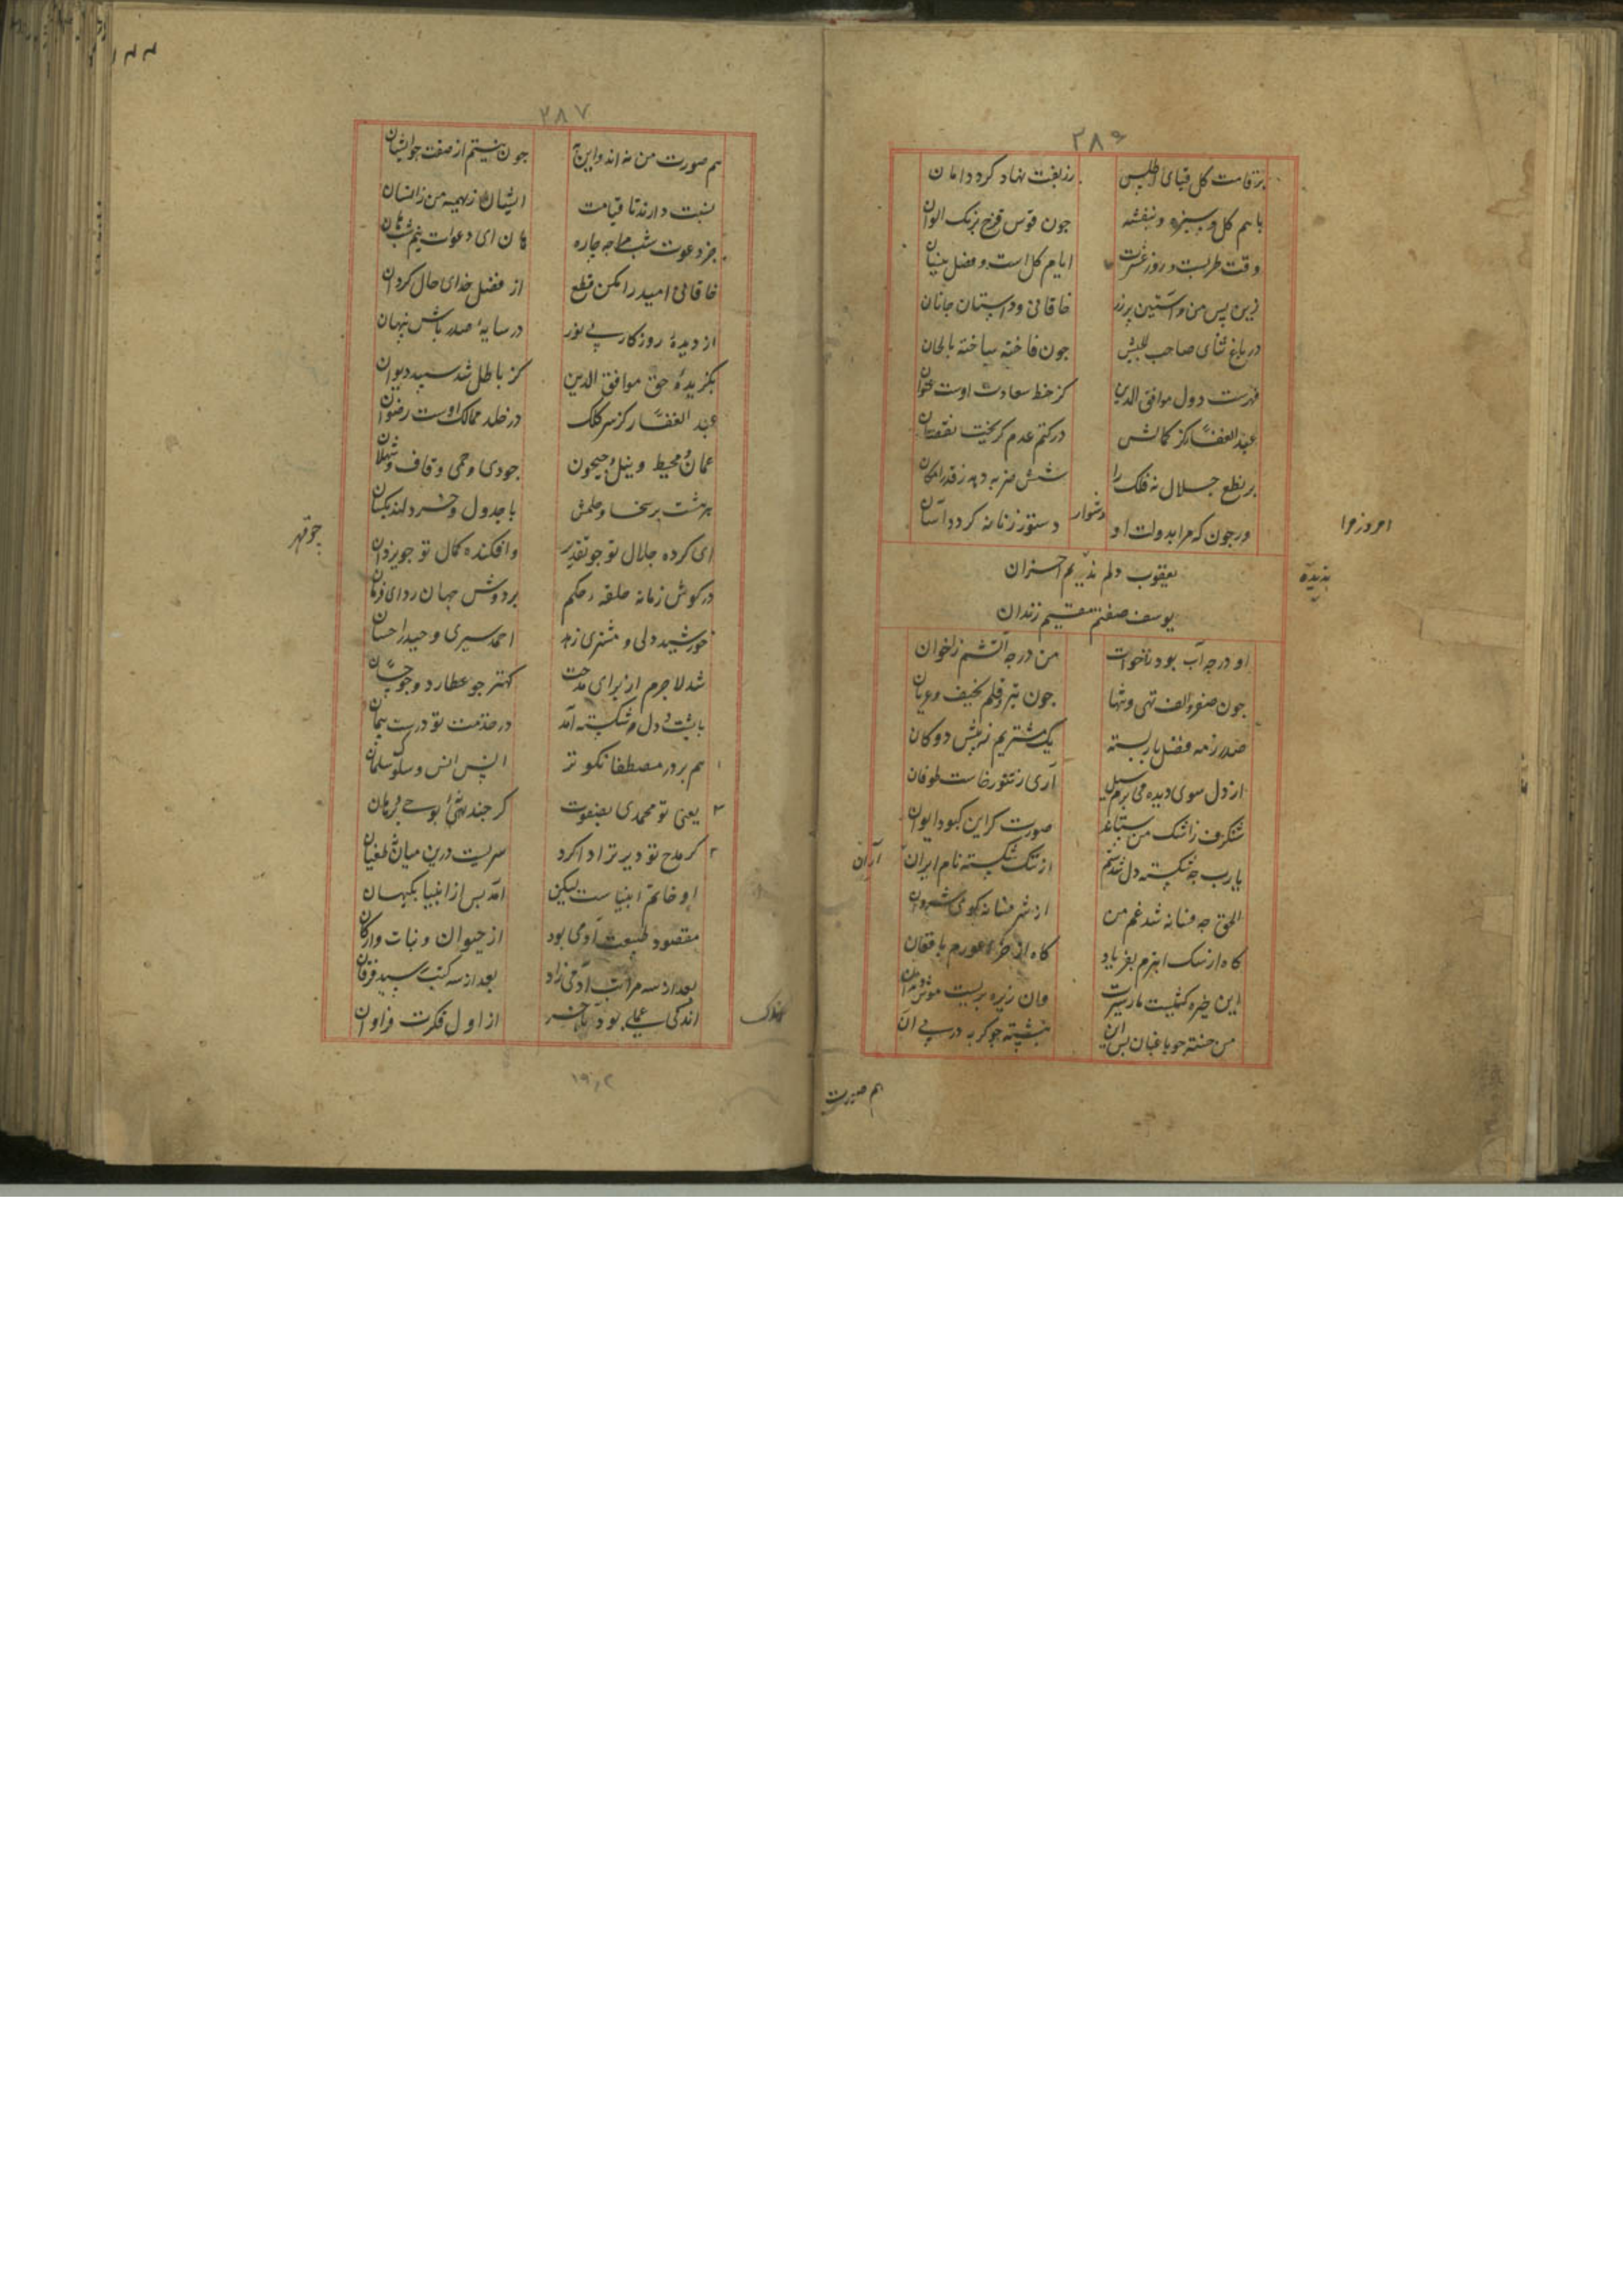 ۲۸۶
بر قامت گل قبای اطلس زربفت نهاد کرد دامان
با هم گل و سبزه و بنفشه چون قوس قزح برنک الوان
وقت طربست و روز عشرت ایام کل است و فصل نیسان
زین پس من و آستین پر زر خاقانی و داستان جانان
در باغ ثنای صاحب الجیش جون فاخته ساخته بالحان
فهرست دول موافق الدین کز خط سعادت اوست عنوان
عبد الغفار کز کمالش در کتم عدم کریخت نقصان
بر نطع جلال نه فلک را شش ضربه دهد ز قدر امکان
ورجون که مرا بدولت او دشوار دستور زمانه کردد آسان
امروز مرا
یعقوب دلم ندیم احزان
یوسف صفتم مقیم زندان
پدیده
او در چه آب بود ز اخوات من در چه آتشم ز اخوان
چون صفر و الف تهی و تنها جون تیر و قلم نحیف و عریان
صد رزمه فضل بار بسته یک مشتریم نه پیش دوکان
از دل سوی دیده می برم سیل آری ز تنور خاست طوفان
شنکرف ز اشک من ستاند صورتکر این کبود ایوان
یا رب چه شکسته دل شدستم از ننک شکسته نام ایران
اران
الحق چه فسانه شد غم من از شر فسانه کوی شروان
کاه از سک ابترم بفریاد کاه از خر اعورم بافغان
این خیره کشیست مار سیرت وان زیره بریست موش دندان
من خسته چو باغبان پس این بنشسته چو کربه در پی آن
هم صورت
۲۸۷
هم صورت من نه اند و این به جون نیستم از صفت چو ایشان
نسبت دارند تا قیامت ایشان ز بهیمه من ز انسان
جز دعوت شب مرا چه چاره هان ای دعوات نیم شب هان
خاقانی امید را مکن قطع از فضل خدای حال کردان
از دیده روزکار بی نور در سایه صدر باش پنهان
بکزیده حق موافق الدین کز باطل شد سپید دیوان
عبد الغفار کز سر کلک در خلد ممالک اوست رضوان
عمان و محیط و نیل و جیحون جودی و حری و قاف و ثهلان
هر هشت بر سخا و حلمش با جدول و خردلند یکسان
ای کرده جلال تو چو تقدیر وافکنده کمال تو چو یزدان
چو قهر
در کوش زمانه حلقه حکم بر دوش جهان ردای فرمان
خورشید دلی و مشتری زهد احمد سیری و حیدر احسان
شد لاجرم از برای مدحت کهتر چو عطارد و چو حسان
با پشت و دل شکسته آمد در خدمت تو درست پیمان
۱ هم بر در مصطفا نکوتر انس انس و سلوت سلمان
۳ یعنی تو محمدی بصفوت کر چند نهٔ بوحی و فرمان
۲ کر مدح تو دیرتر ادا کرد سریست درین میانه نه طغیان
او خاتم انبیاست لیکن آمد پس از انبیا بکیهان
مقصود طبیعت آدمی بود از حیوان و نبات و ارکان
بعد از سه مراتب آدمی زاد بعد از سه کتب رسید فرقان
اندک عملی بود بآخر از اول فکرت فراوان
اندک